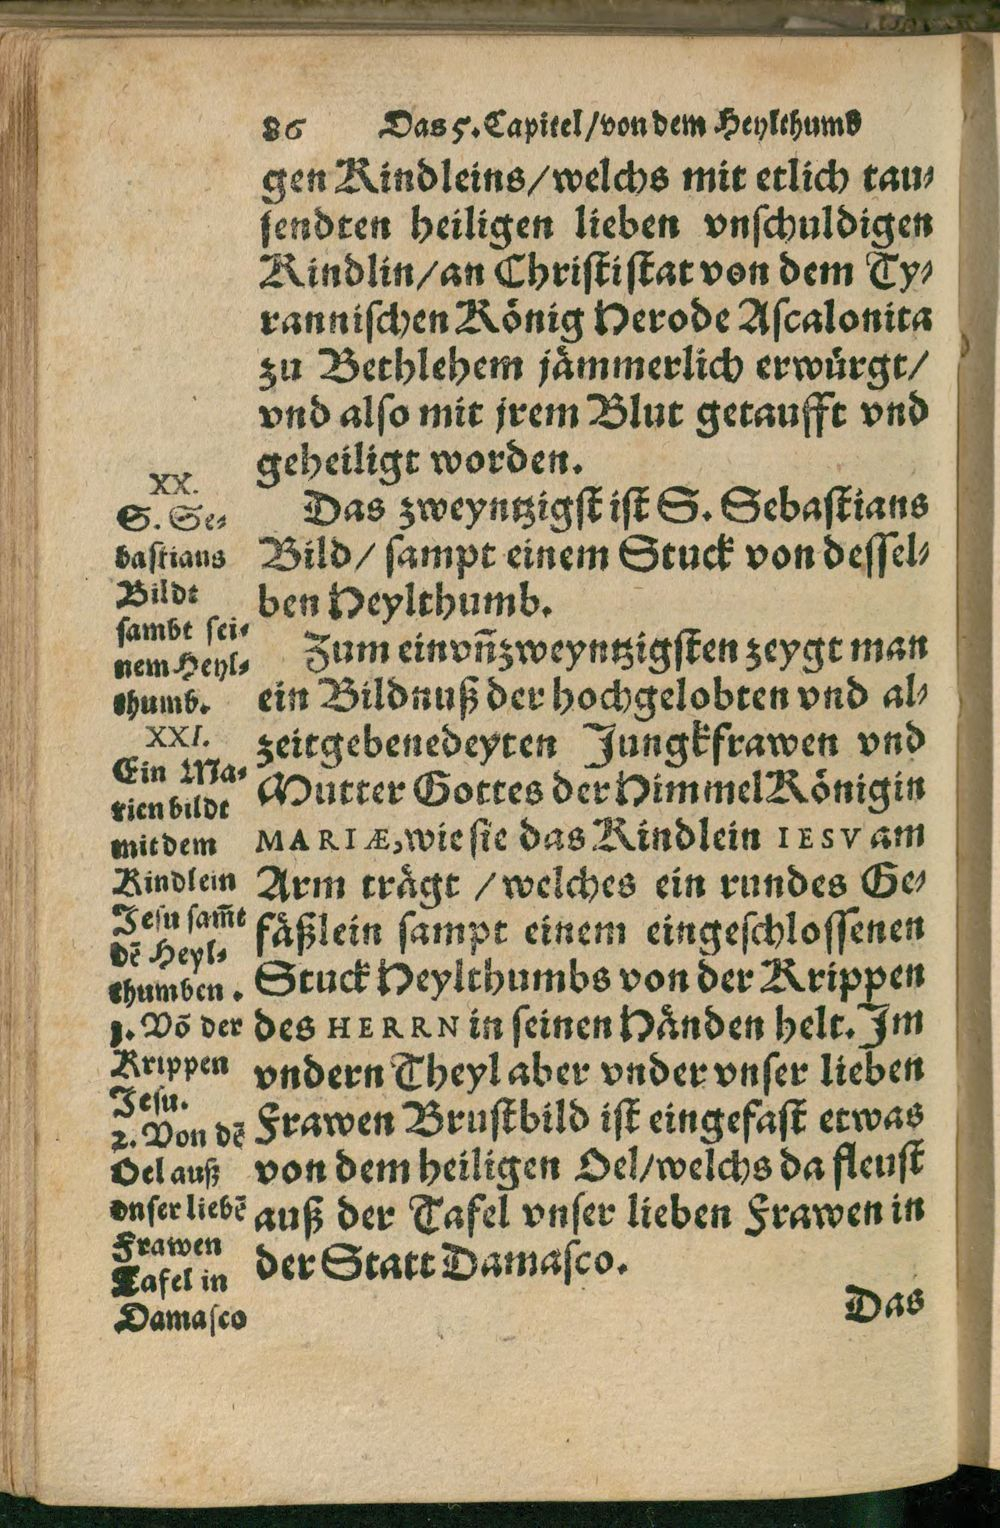 86 Das 5. Capitel/von dem Heylthumb
gen Kindleins/welchs mit etlich tau-
sendten heiligen lieben vnschuldigen
Kindlin/an Christi stat von dem Ty-
rannischen König Herode Ascalonita
zu Bethlehem jämmerlich erwürgt/
vnd also mit jrem Blut getaufft vnd
geheiligt worden.
Das zweyntzigst ist S. Sebastians
Bild/ sampt einem Stuck von dessel-
ben Heylthumb.
Zum einvñzweyntzigsten zeygt man
ein Bildnuß der hochgelobten vnd al-
zeitgebenedeyten Jungkfrawen vnd
Mutter Gottes der HimmelKönigin
MARIÆ, wie sie das Kindlein IESV am
Arm trägt /welches ein rundes Ge-
fäßlein sampt einem eingeschlossenen
Stuck Heylthumbs von der Krippen
des HERRN in seinen Händen helt. Im
vndern Theyl aber vnder vnser lieben
Frawen Brustbild ist eingefast etwas
von dem heiligen Oel/welchs da fleust
auß der Tafel vnser lieben Frawen in
der Statt Damasco.
Das
XX.
S. Se-
bastians
Bildt
sambt sei-
nem Heyl-
thumb.
XXI.
Ein Ma-
rienbildt
mit dem
Kindlein
Jesu sam̃t
dẽ Heyl-
thumben.
1. Võ der
Krippen
Jesu.
2. Von dẽ
Oel auß
vnser liebẽ
Frawen
Tafel in
Damasco